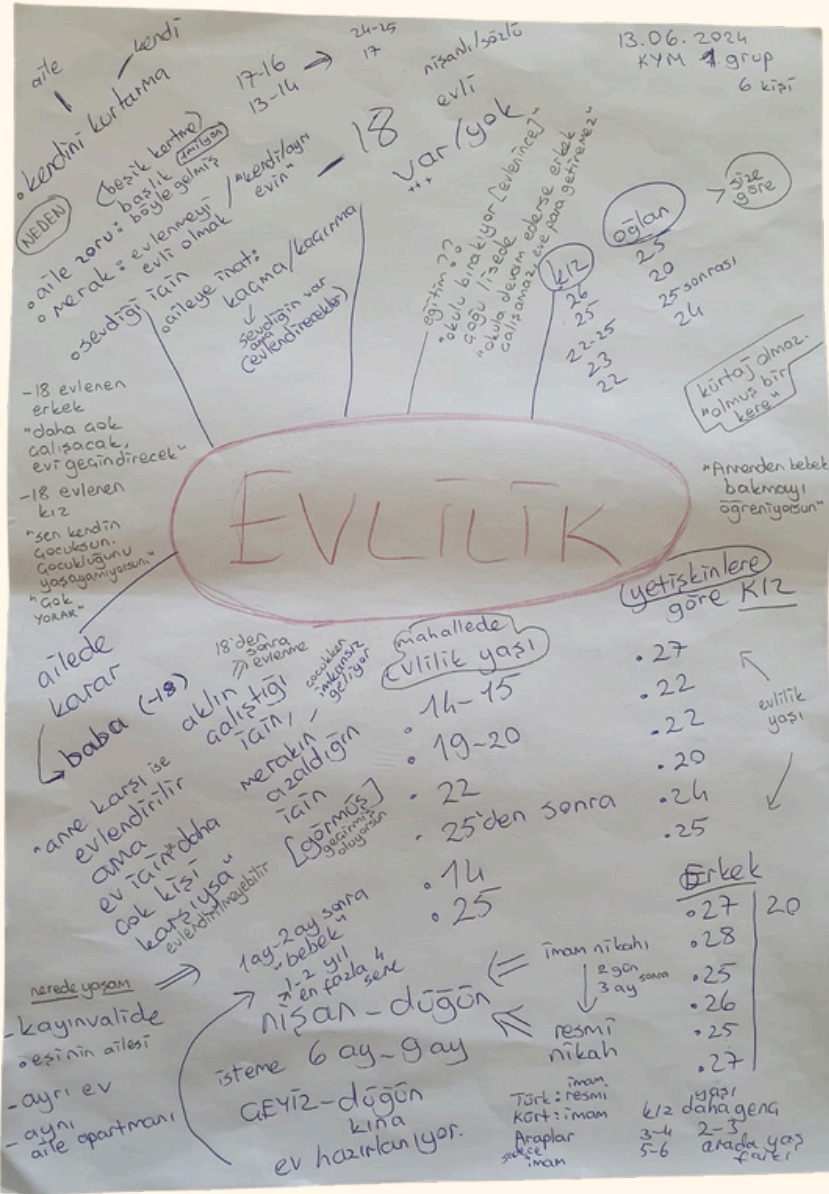 13.06.2024
KYM 1.grup
6 kişi
aile
kendi
• kendini kurtarma
NEDEN
(beşik kertme)
başlık 1milyon
• aile zoru: böyle gelmiş
• merak: evlenmeyi
evli olmak
"kendi/ayrı
evin"
• sevdiği için
• aileye inat:
kaçma/kaçırma
sevdiğin var
ama
(evlendirecekler)
17-16 → 24-25
13-14 17
18
nişanlı/sözlü
evli
var/yok
+++
eğitim??
"okulu bırakıyor [evlenince]"
çoğu lisede
"okula devam ederse erkek
çalışamaz, eve para getiremez"
kız
26
25
22-25
23
22
oğlan
25
20
25 sonrası
24
> size
göre
kürtaj olmaz.
"olmuş bir
kere"
"Annenden bebek
bakmayı
öğreniyorsun"
-18 evlenen
erkek
"daha çok
çalışacak,
evi geçindirecek"
-18 evlenen
kız
"sen kendin
çocuksun.
Çocukluğunu
yaşayamıyorsun."
"ÇOK
YORAR"
EVLİLİK
ailede
karar
baba (-18)
"anne karşı ise
evlendirilir
ama
ev için daha
çok kişi
karşıysa"
evlendirilmeyebilir
18'den
sonra
evlenme
aklın
çalıştığı
için,
çocukken
imkansız
geliyor
merakın
azaldığın
için
[görmüş]
geçirmiş
oluyorsun
mahallede
evlilik yaşı
• 14-15
• 19-20
• 22
• 25'den sonra
• 14
• 25
(yetişkinlere
göre KIZ
• 27
• 22
• 22
• 20
• 24
• 25
evlilik
yaşı
Erkek
• 27 | 20
• 28
• 25
• 26
• 25
• 27
nerede yaşam
-kayınvalide
• eşinin ailesi
-ayrı ev
-aynı
aile apartmanı
1ay-2ay sonra
"bebek"
1-2 yıl
en fazla 4
sene
nişan-düğün
isteme 6 ay-9ay
ÇEYİZ-düğün
kına
ev hazırlanıyor.
imam nikahı
2 gün
3 ay sonra
resmi
nikah
imam
Türk: resmi
Kürt: imam
Araplar
sadece
imam
yaşı
kız daha genç
3-4 2-3
5-6 arada yaş
farkı